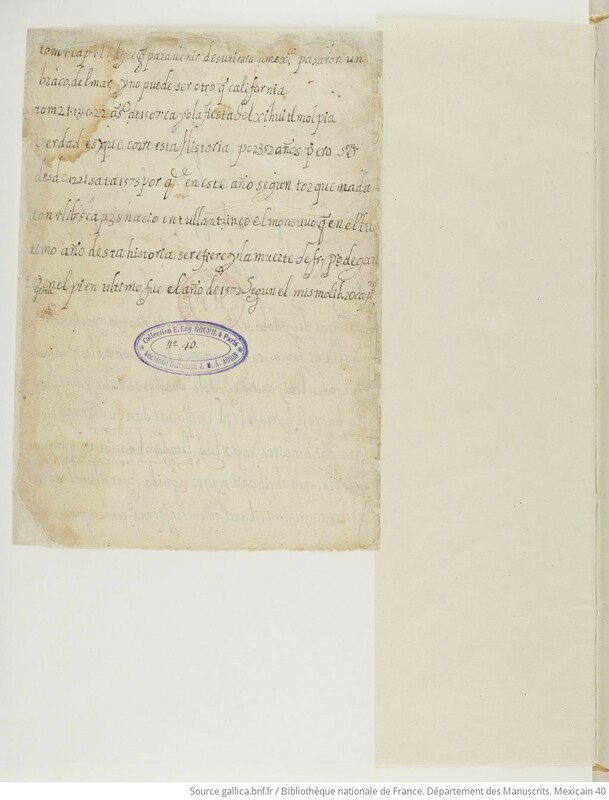 tom 1 cap 1 l. 1 dice q̃ para venir de su tierra a mexco pasaron un
braço de el mar y no puede ser otro q̃ california
tom 2 l. 13. c. 22 as. de 1507 ca yo la fiesta del xihuitlmolpia
Verdad es que corre esta Historia por 352 años pero
desde 1221 sata 1573 por q̃ en este año segun torquemada
tom 1 lib 5 cap 23 nacio en tullantzinco el monstruo q̃ en el ul
timo año desta historia se refiere y la muerte de fr. po de gan
te en el pi en ultimo fue el año de 1572 Segun el mismo lib. 20 cap
Collection E. Eug. GOUPIL à Paris
no 40.
Ancienne Collection J. M. A. AUBIN
Source gallica.bnf.fr / Bibliothèque nationale de France. Département des Manuscrits. Mexicain 40